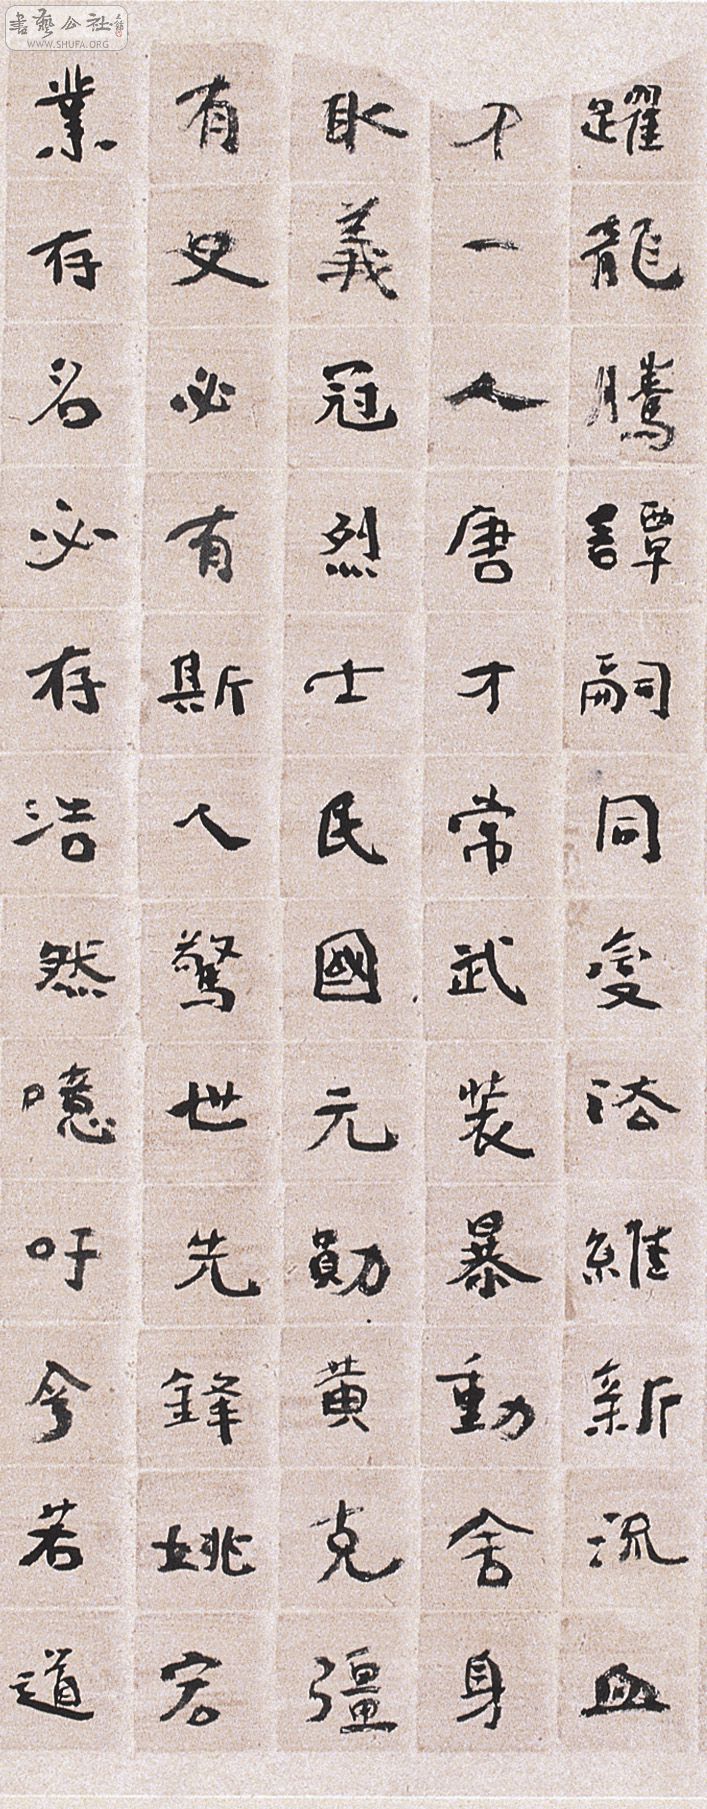 躍龍騰譚嗣同變法維新流血
不一人唐才常武裝暴動舍身
取義冠烈士民國元勛黃克彊
有史必有斯人驚世先鋒姚宏
業存名必存浩然噫吁今若道
書藝公社
WWW.SHUFA.ORG